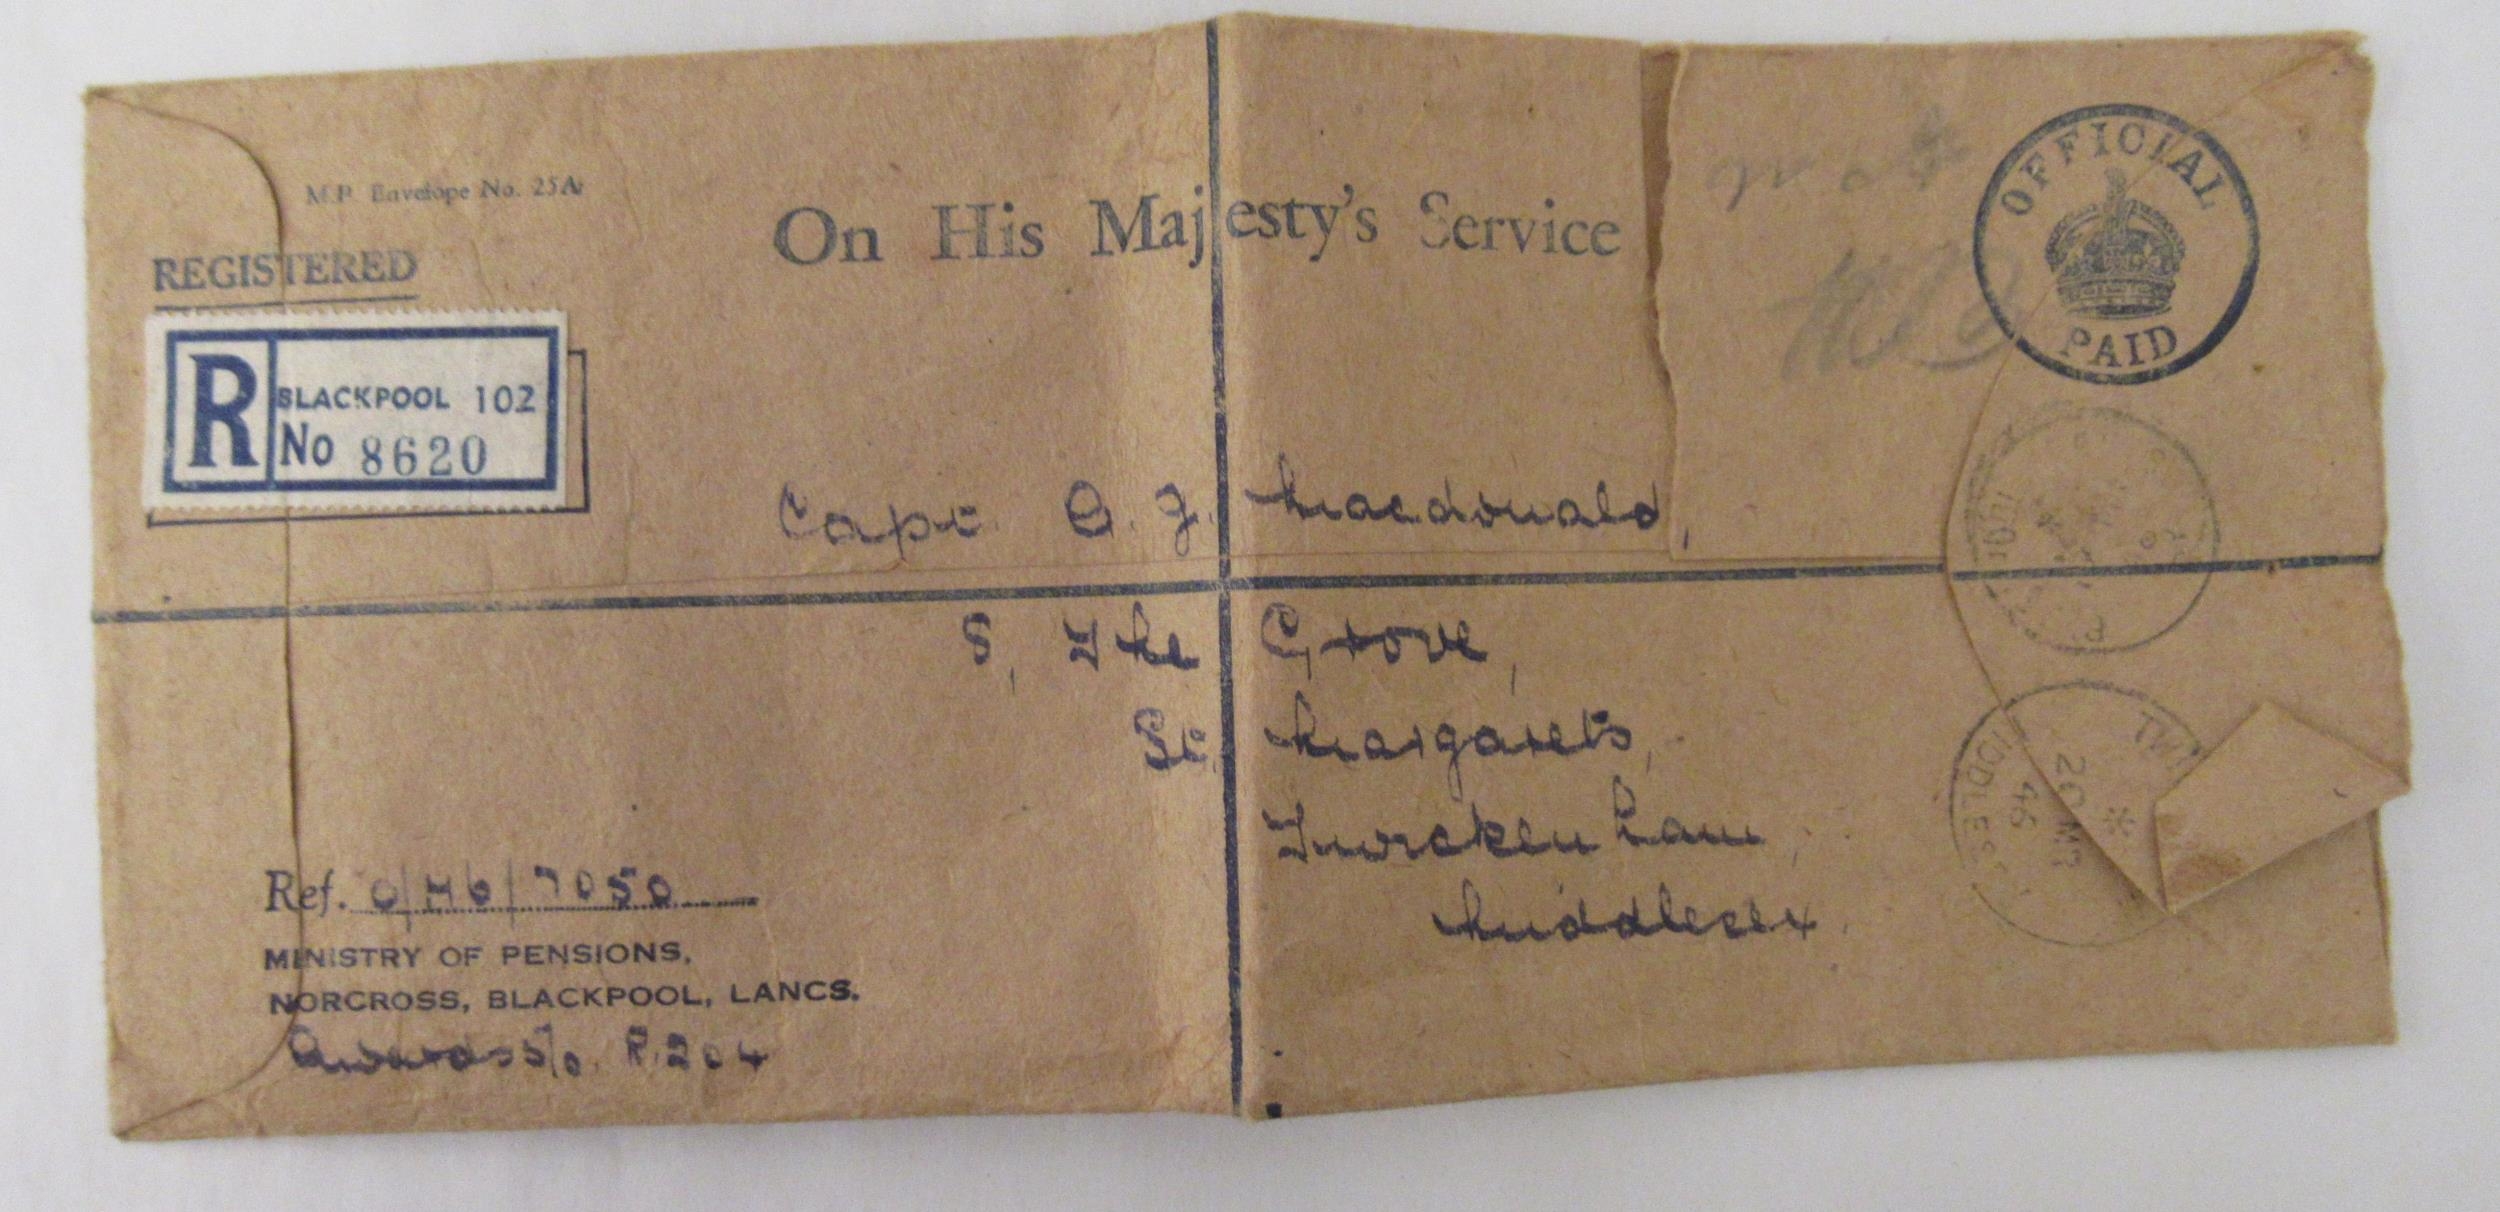 M.P. Envelope No. 25A
REGISTERED
On His Majesty's Service
OFFICIAL
PAID
R BLACKPOOL 102
No 8620
Capt. G. J. Macdonald,
8, The Grove,
St. Margarets,
Twickenham,
Middlesex.
TWI
20 MR
46
MIDDLESEX
Ref. O/M6/7050
MINISTRY OF PENSIONS,
NORCROSS, BLACKPOOL, LANCS.
Awards 5/0. R.204